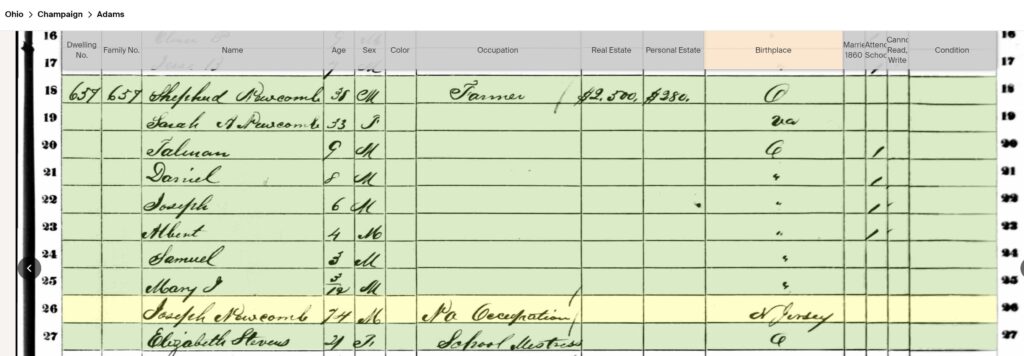 Ohio > Champaign > Adams
16
Dwelling No. Family No. Name Age Sex Color Occupation Real Estate Personal Estate Birthplace Married 1860 Attend School Cannot Read, Write Condition
17 17
18 657 657 Shephud Newcomb 38 M Farmer $2,500, $380. O 18
19 Sarah A Newcomb 33 F Va 19
20 Talman 9 M O / 20
21 Daniel 8 M " / 21
22 Joseph 6 M " / 22
23 Albert 4 M " / 23
24 Samuel 3 M " 24
25 Mary J 3/12 M " 25
26 Joseph Newcomb 74 M No Occupation N Jersey 26
27 Elizabeth Stevens 21 F School Mistress O 27